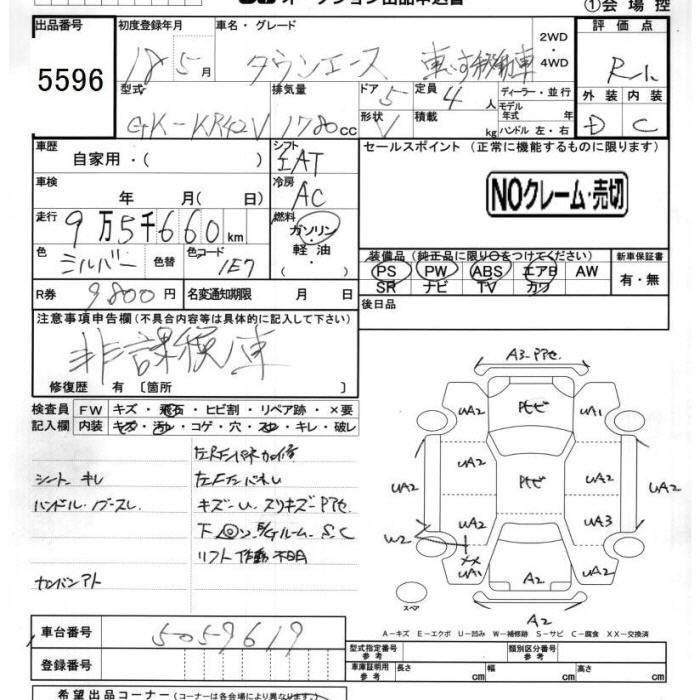 オークション出品申込書
①会場控
出品番号 初度登録年月 車名・グレード 2WD・4WD 評価点
5596 18 5月 タウンエース R-1
型式 排気量 ドア 5 定員 4人 ディーラー・並行 外装 内装
GK-KR42V 1780cc 形状 V 積載 kg モデル年式 年 ハンドル 左・右 D C
車歴 シフト セールスポイント (正常に機能するものに限ります)
自家用・( ) IAT
車検 年 月(日) 冷房 AC NOクレーム・売切
走行 9万5千660km 燃料 ガソリン・軽油・( )
色 シルバー 色替 色コード 1E7 装備品 (純正品に限り○をつけてください) 新車保証書
PS PW ABS エアB AW 有・無
SR ナビ TV カワ
R券 9,800円 名変通知期限 月 日 後日品
注意事項申告欄 (不具合内容等は具体的に記入して下さい)
非課税車
修復歴 有 [箇所 ]
検査員記入欄 FW キズ・飛石・ヒビ割・リペア跡・×要
内装 キズ・汚レ・コゲ・穴・スレ・キレ・破レ
シート キレ
ハンドル・
キズ-U スリキズ
下 S.C
リフト作動不明
ナンバンアト
A3
UA2 UA1
UA2 UA2 UA2 UA2
UA2 UA3
W2 XX UA1 UA2
A2
スペア A2
A-キズ E-エクボ U-凹み W-補修跡 S-サビ C-腐食 XX-交換済
車台番号 5059619
登録番号
型式指定番号 参考 類別区分番号 参考
車庫証明用 参考 長さ cm 幅 cm 高さ cm
希望出品コーナー (コーナーは各会場により異なります)